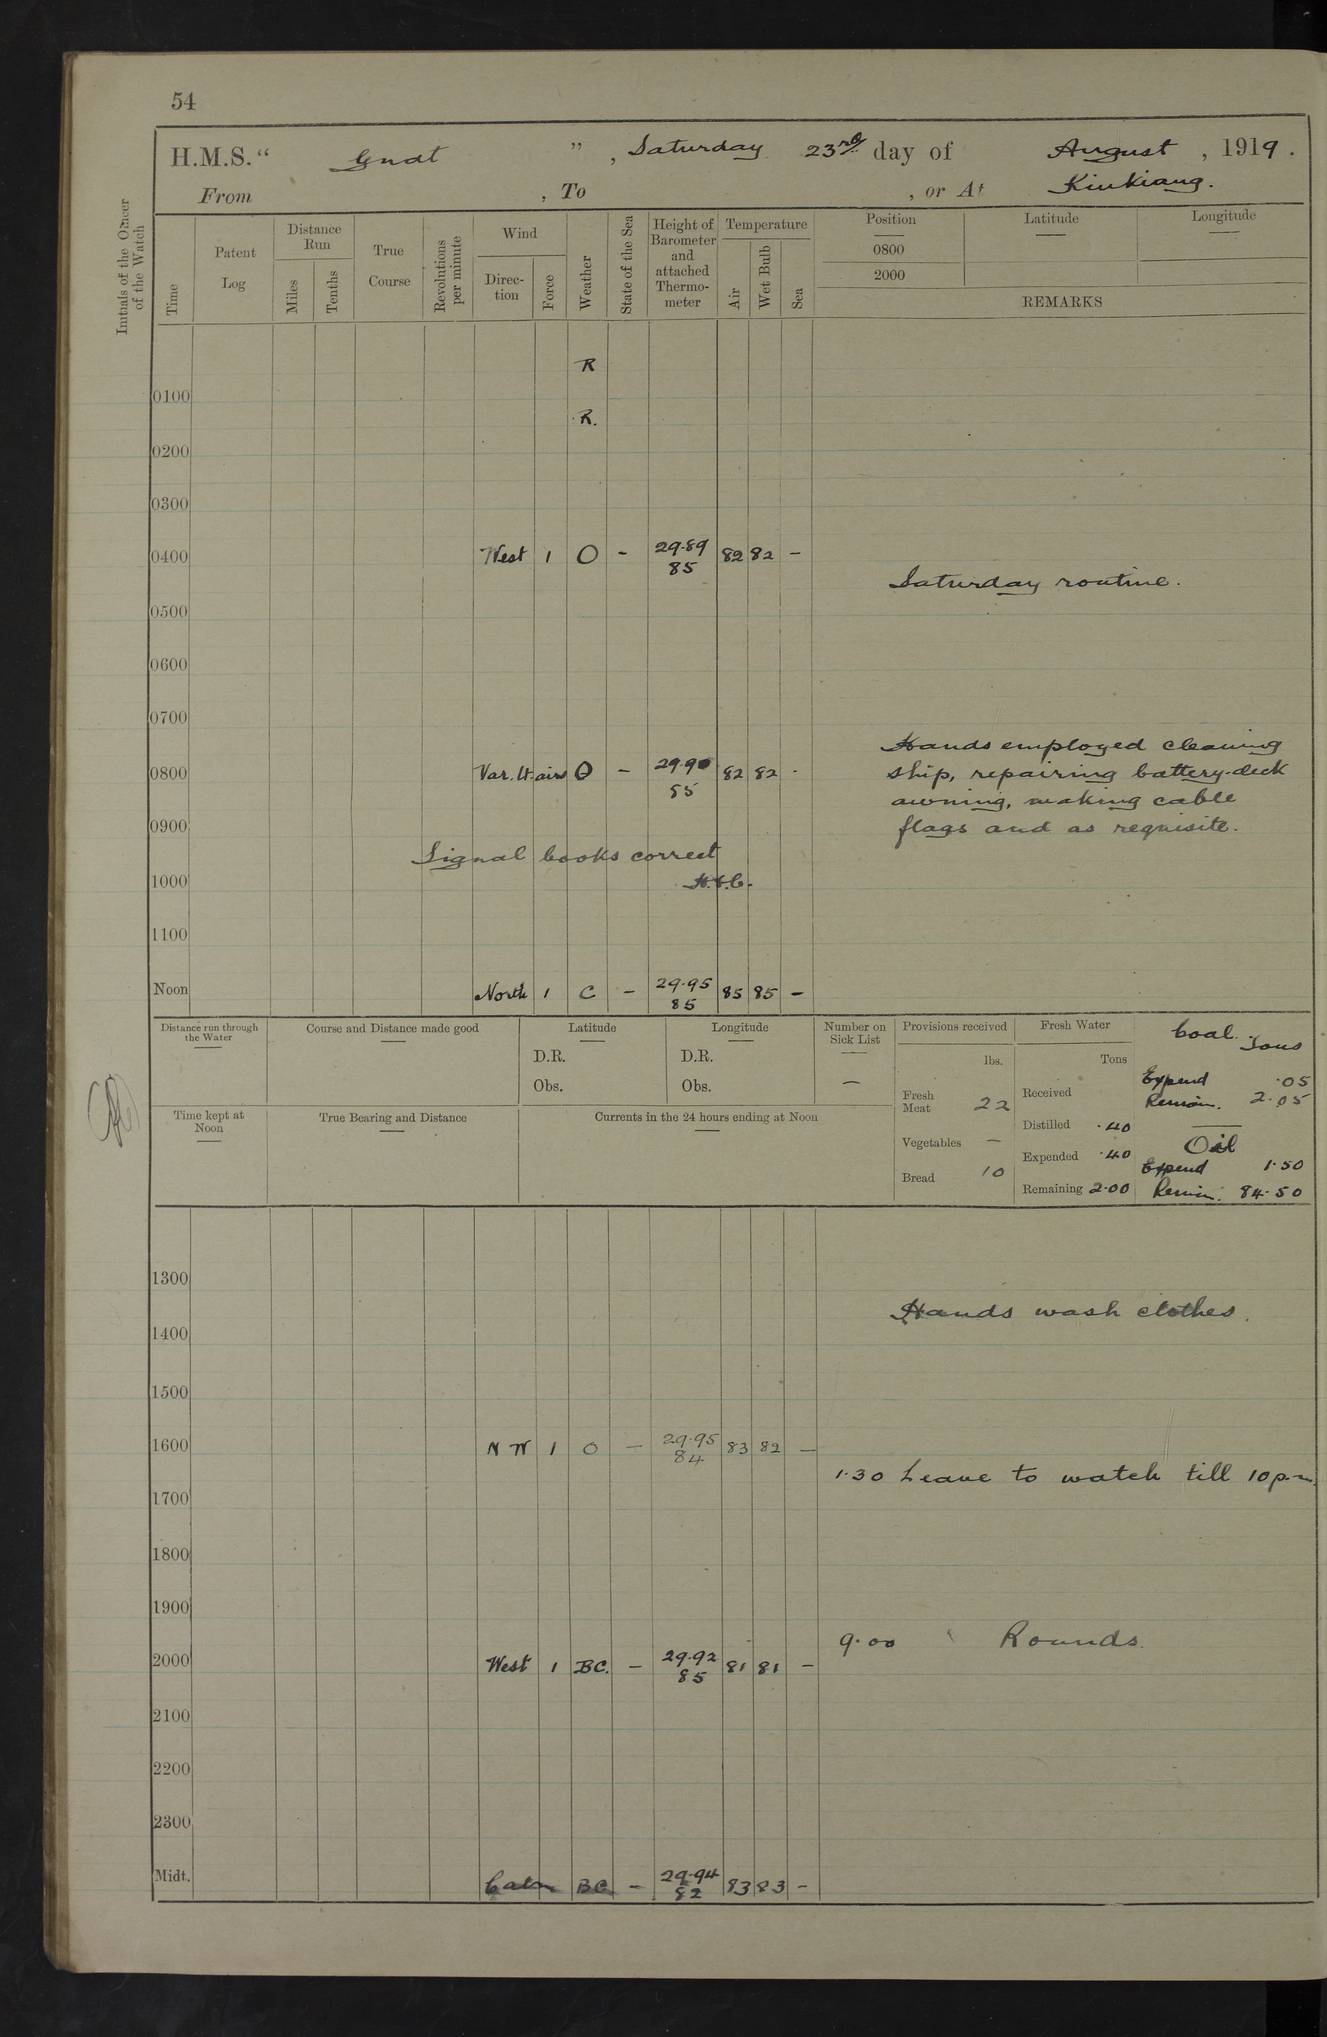 54
H.M.S. “ Gnat ” , Saturday 23rd day of August , 1919 .
From , To , or At Kiukiang.
Initials of the Officer of the Watch
Time
Patent Log
Distance Run
Miles
Tenths
True Course
Revolutions per minute
Wind
Direc-tion
Force
Weather
State of the Sea
Height of Barometer and attached Thermo-meter
Temperature
Air
Wet Bulb
Sea
Position
0800
2000
Latitude
Longitude
REMARKS
R
0100
R.
0200
0300
0400 West 1 O - 29.89 82 82 -
85
Saturday routine.
0500
0600
0700
Hands employed cleaning
0800 Var. lt. airs O - 29.90 82 82 - ship, repairing battery-deck
85 awning, making cable
0900 flags and as requisite.
Signal books correct
1000
1100
Noon North 1 C - 29.95 85 85 -
85
Distance run through the Water
Course and Distance made good
Latitude
D.R.
Obs.
Longitude
D.R.
Obs.
Number on Sick List
—
Provisions received
lbs.
Fresh Meat 22
Vegetables —
Bread 10
Fresh Water
Tons
Received
Distilled .40
Expended .40
Remaining 2.00
Coal. Tons
Expend .05
Remain. 2.05
Oil
Expend 1.50
Remain. 84.50
Time kept at Noon
True Bearing and Distance
Currents in the 24 hours ending at Noon
1300
Hands wash clothes.
1400
1500
1600 N W 1 O - 29.95 83 82 -
84
1.30 Leave to watch till 10 p.m.
1700
1800
1900
9.00 Rounds.
2000 West 1 BC. - 29.92 81 81 -
85
2100
2200
2300
Midt. Calm BC - 29.94 83 83 -
82